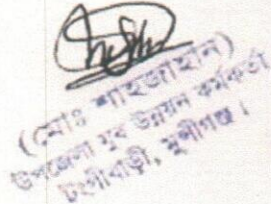 (মোঃ শাহজাহান)
উপজেলা যুব উন্নয়ন কর্মকর্তা
টংগীবাড়ী, মুন্সীগঞ্জ।